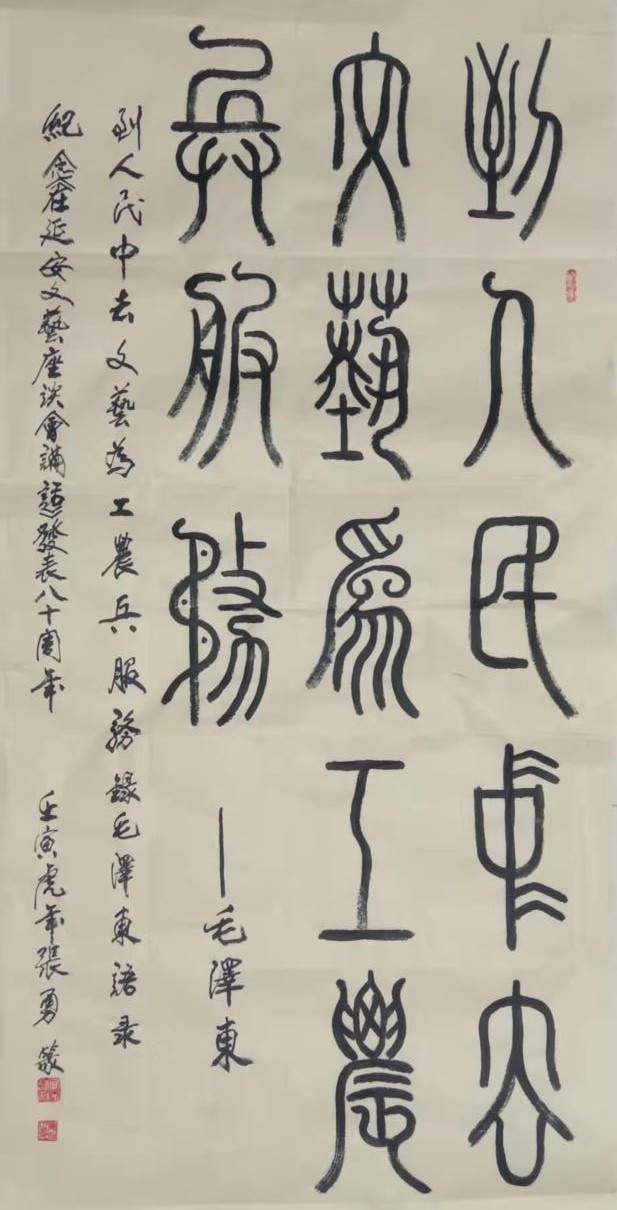 到人民中去
文藝為工農
兵服務
—毛澤東
到人民中去文藝為工農兵服務錄毛澤東語录
紀念在延安文藝座談會講話發表八十周年
壬寅虎年張勇篆